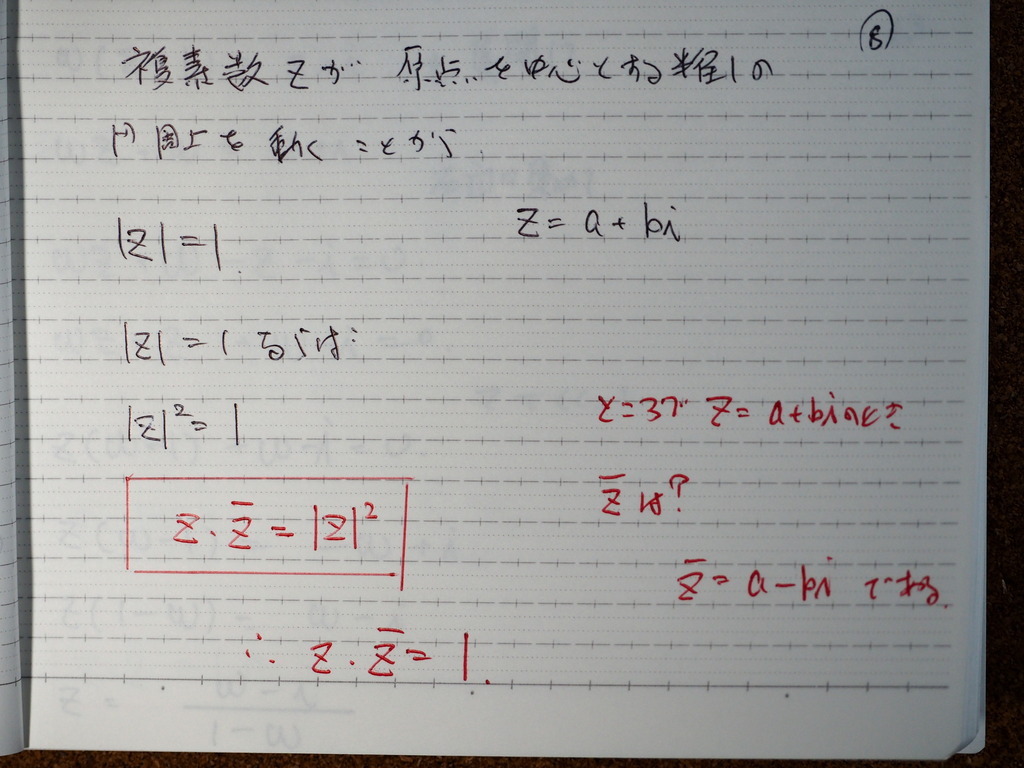 ⑧
複素数zが原点を中心とする半径1の
円周上を動くことから
|z|=1.
z = a + bi
|z| = 1 ならば
|z|² = 1
ところで z = a+bi のとき
z̄ は?
z・z̄ = |z|²
z̄ = a − bi である.
∴ z・z̄ = 1.